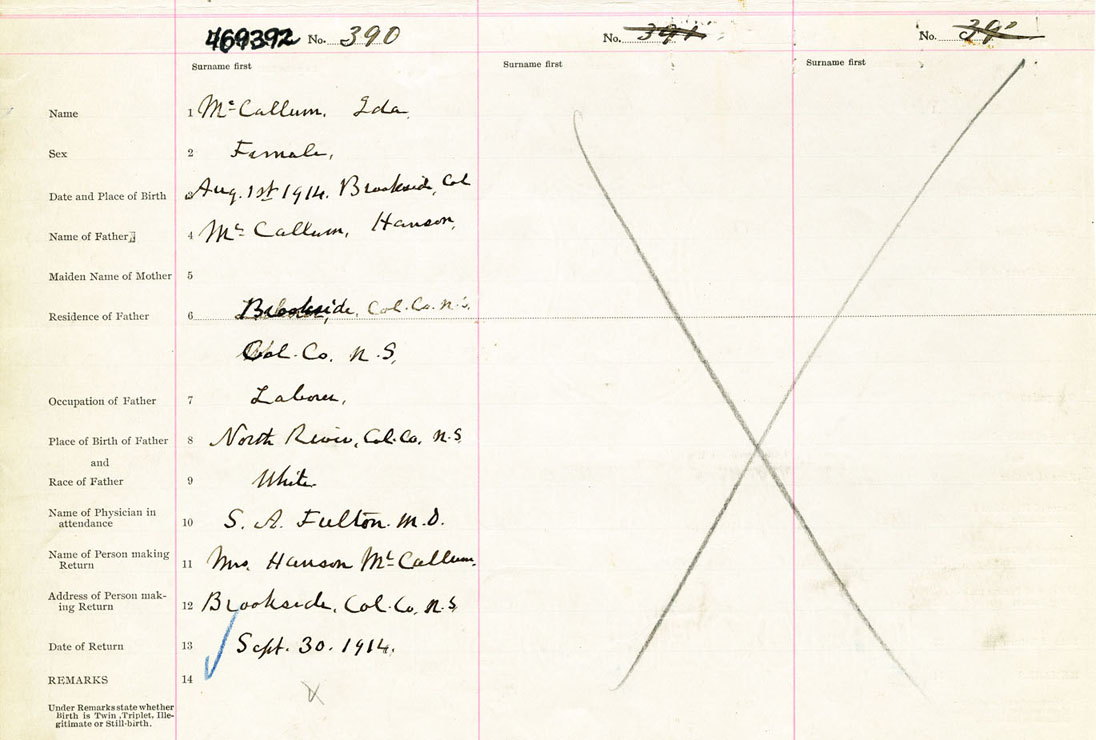 469392 No. 390 No. 391 No. 39
Surname first Surname first Surname first
Name 1 McCallum, Ida,
Sex 2 Female,
Date and Place of Birth 3 Aug. 1st 1914. Brookside, Col
Name of Father 4 McCallum, Hanson,
Maiden Name of Mother 5
Residence of Father 6 Brookside, Col. Co. N.S.
Col. Co. N.S,
Occupation of Father 7 Laborer,
Place of Birth of Father 8 North River, Col. Co, N.S,
and
Race of Father 9 White
Name of Physician in
attendance 10 S. A. Fulton. M.D.
Name of Person making
Return 11 Mrs. Hanson McCallum.
Address of Person mak-
ing Return 12 Brookside, Col. Co, N.S
Date of Return 13 Sept. 30. 1914.
REMARKS 14
Under Remarks state whether
Birth is Twin, Triplet, Ille-
gitimate or Still-birth.